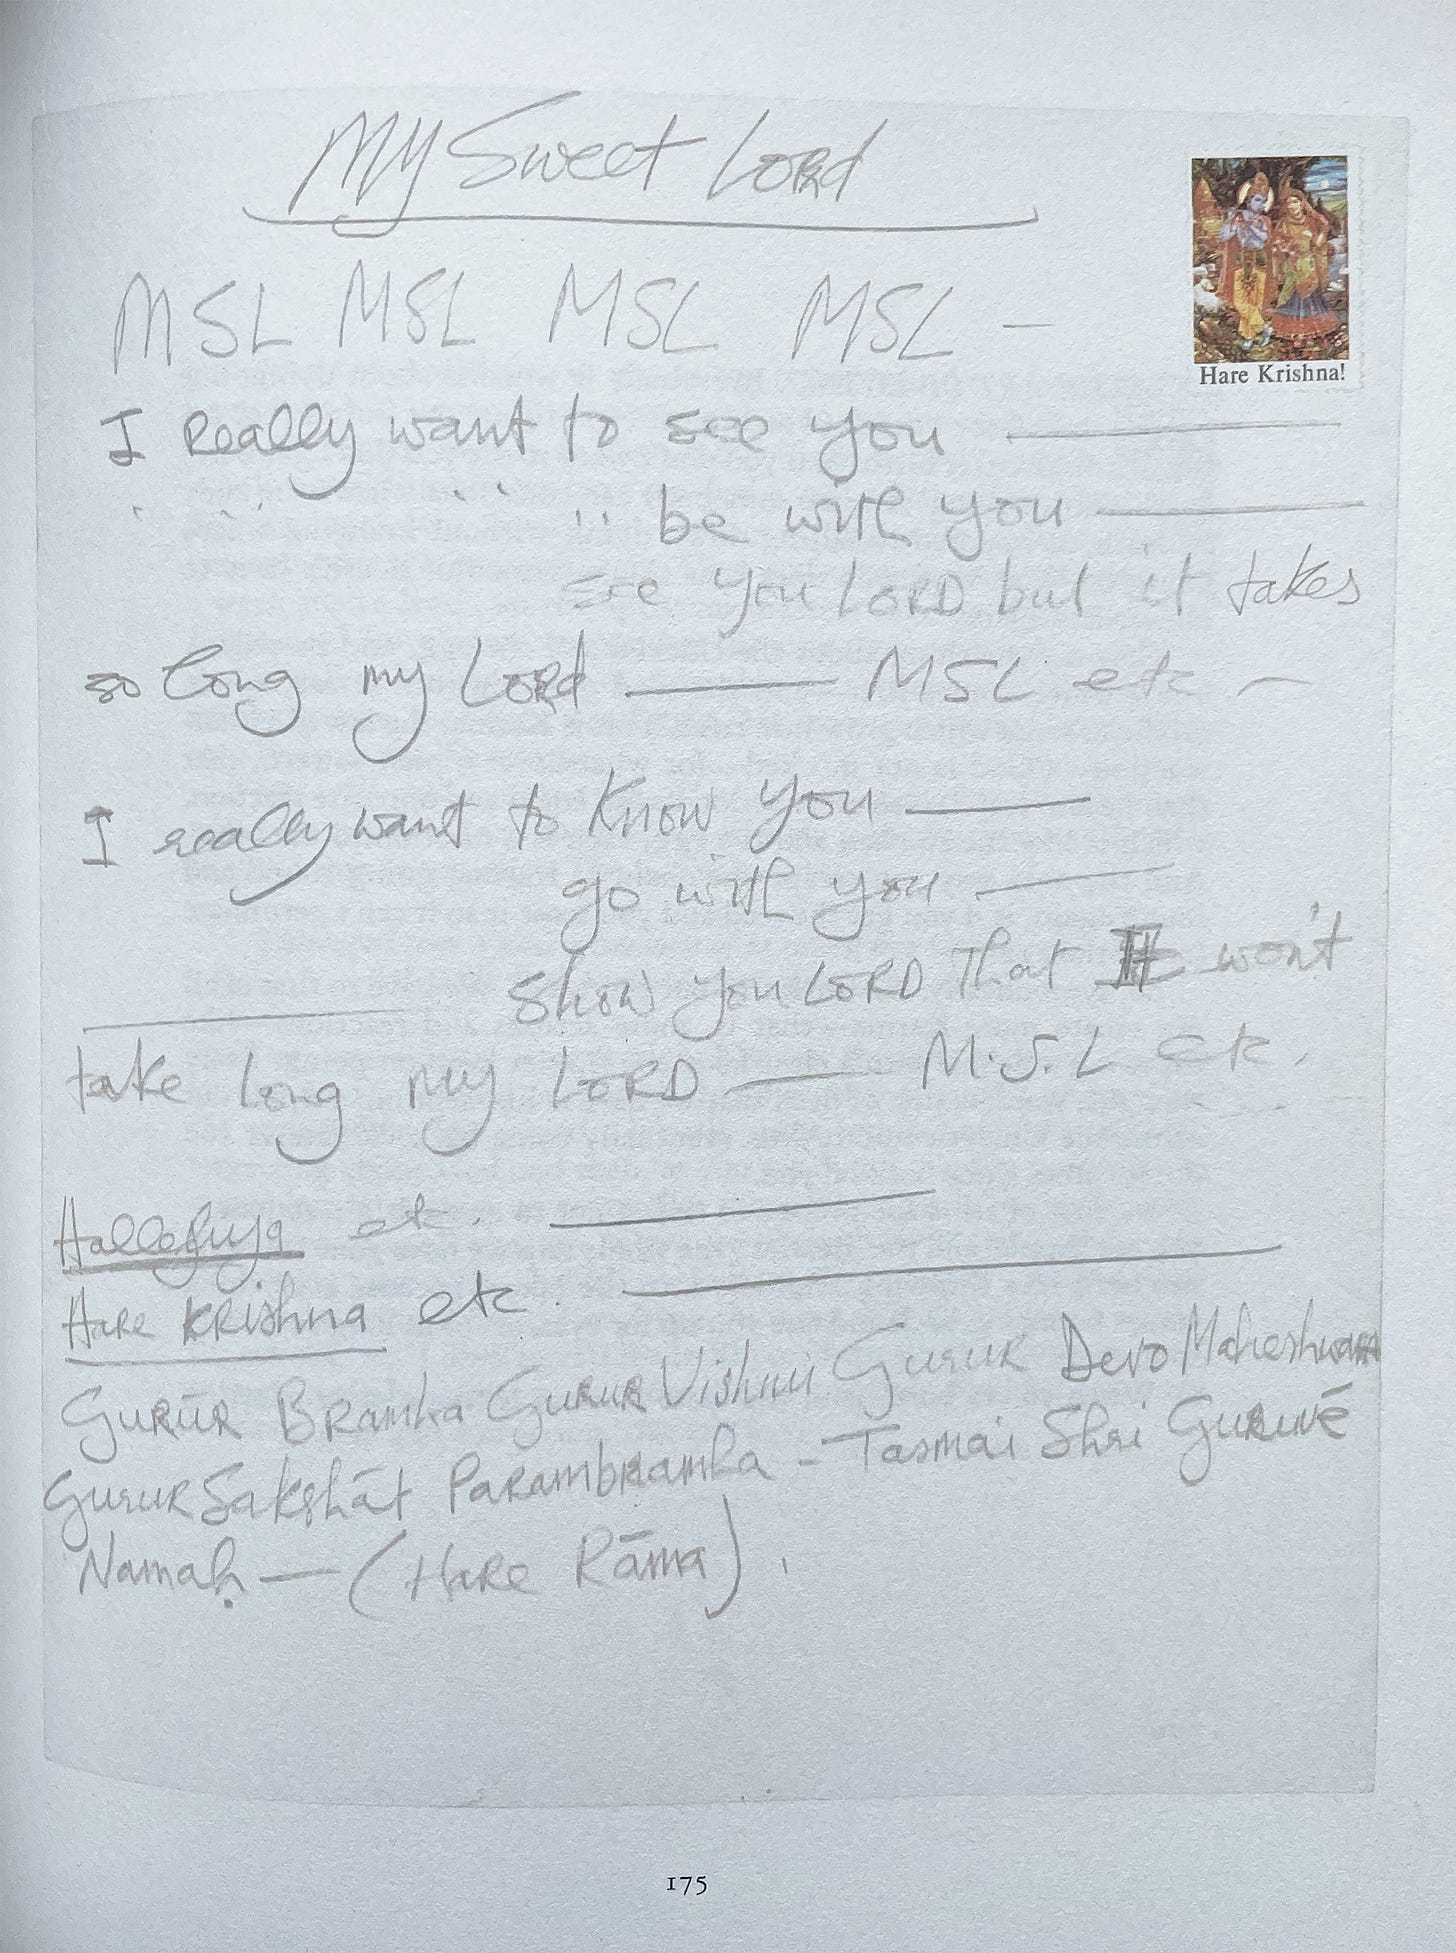 My Sweet Lord
MSL MSL MSL MSL —
Hare Krishna!
I Really want to see you ———
" " " " be with you ———
see you LORD but it takes
so long my LORD ——— MSL etc —
I really want to know you ———
go with you ———
——— show you LORD that It won't
take long my LORD —— M.S.L etc.
Hallelujya etc. ———
Hare Krishna etc. ———
Gurūr Bramha Gurur Vishnu Gurur Devo Maheshwara
Gurur Sakshāt Parambramha - Tasmai Shri Guruvē
Namaḥ — (Hare Rāma).
175